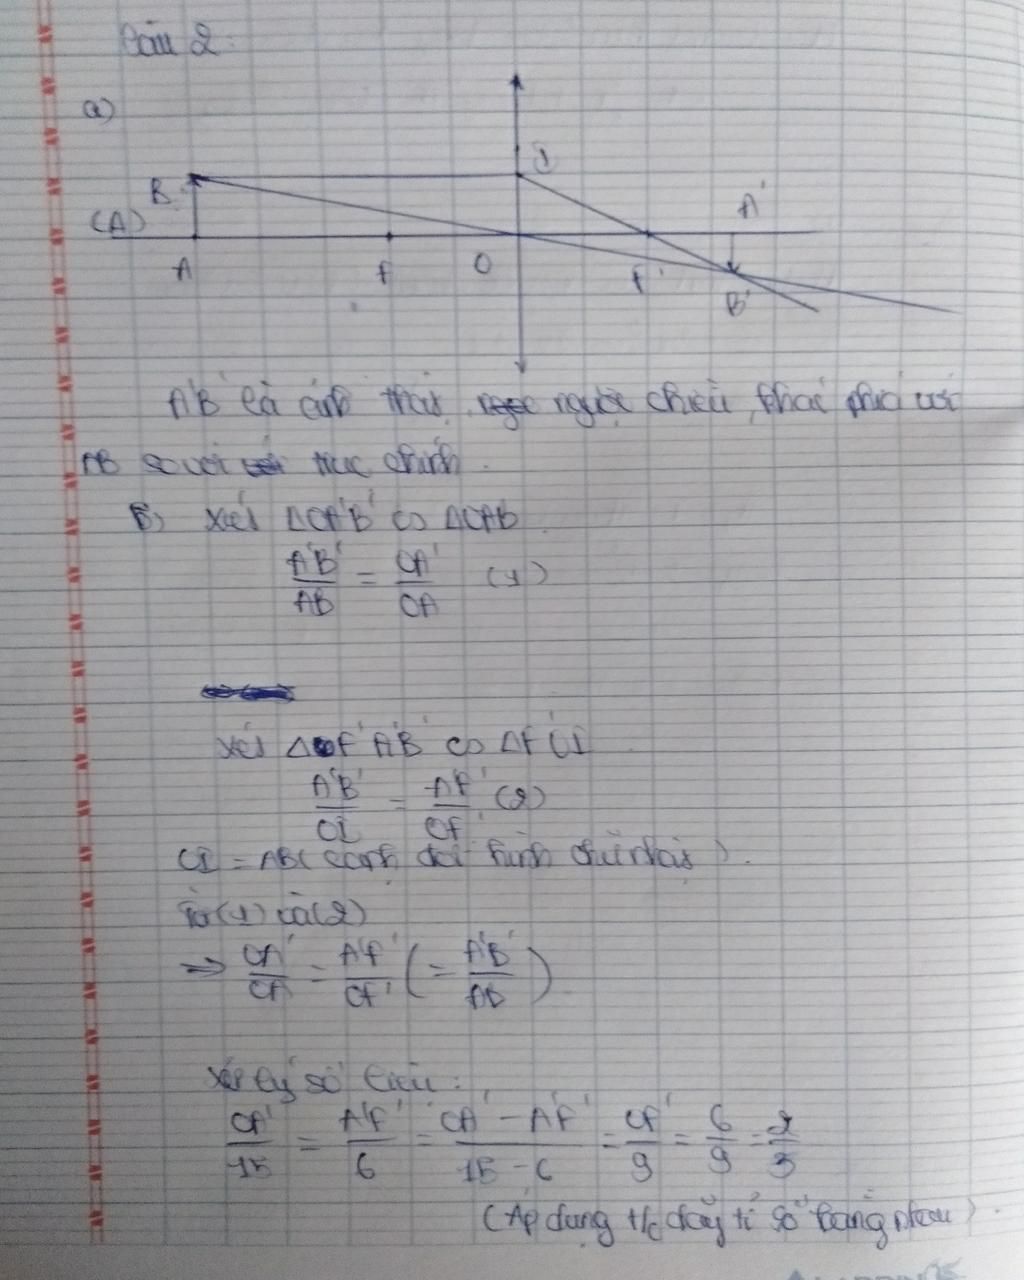 Câu 2:
a)
I
B
A'
(Δ)
A F O F'
B'
A'B' là ảnh thật, ngược chiều, khác phía với
AB so với trục chính.
B, Xét ΔOA'B' ∽ ΔOAB
A'B'/AB = OA'/OA (1)
Xét ΔF'A'B' ∽ ΔF'OI
A'B'/OI = A'F'/OF' (2)
OI = AB (cạnh đối hình chữ nhật).
Từ (1) và (2)
⇒ OA'/OA = A'F'/OF' (= A'B'/AB)
Xử lý số liệu:
OA'/15 = A'F'/6 = OA' - A'F'/15 - 6 = OF'/9 = 6/9 = 2/3
(Áp dụng t/c dãy tỉ số bằng nhau).